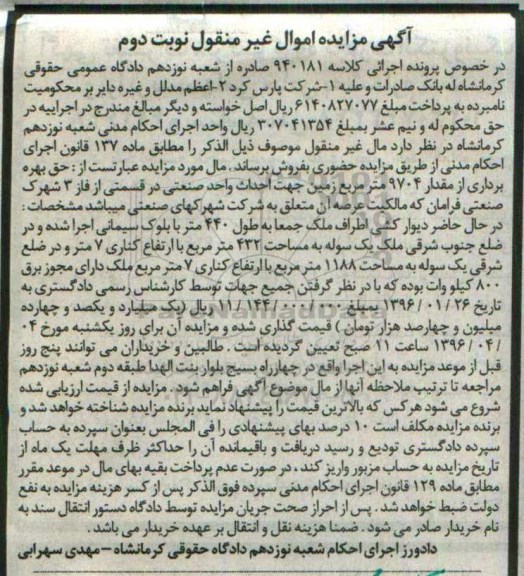 آگهی مزایده اموال غیر منقول نوبت دوم
در خصوص پرونده اجرائی کلاسه ۹۴۰۱۸۱ صادره از شعبه نوزدهم دادگاه عمومی حقوقی
کرمانشاه له بانک صادرات و علیه ۱-شرکت پارس کرد ۲-اعظم مدلل و غیره دایر بر محکومیت
نامبرده به پرداخت مبلغ ۶۱۴۰۸۲۷۰۷۷ ریال اصل خواسته و دیگر مبالغ مندرج در اجراییه در
حق محکوم له و نیم عشر بمبلغ ۳۰۷۰۴۱۳۵۴ ریال واحد اجرای احکام مدنی شعبه نوزدهم
کرمانشاه در نظر دارد مال غیر منقول موصوف ذیل الذکر را مطابق ماده ۱۳۷ قانون اجرای
احکام مدنی از طریق مزایده حضوری بفروش برساند. مال مورد مزایده عبارتست از : حق بهره
برداری از مقدار ۹۷۰۴ متر مربع زمین جهت احداث واحد صنعتی در قسمتی از فاز ۳ شهرک
صنعتی فرامان که مالکیت عرصه ان متعلق به شرکت شهرکهای صنعتی میباشد مشخصات :
در حال حاضر دیوار کشی اطراف ملک جمعا به طول ۴۴۰ متر با بلوک سیمانی اجرا شده و در
ضلع جنوب شرقی ملک یک سوله به مساحت ۴۳۲ متر مربع با ارتفاع کناری ۷ متر و در ضلع
شرقی یک سوله به مساحت ۱۱۸۸ متر مربع با ارتفاع کناری ۷ متر مربع ملک دارای مجوز برق
۸۰۰ کیلو وات بوده که با در نظر گرفتن جمیع جهات توسط کارشناس رسمی دادگستری به
تاریخ ۲۶ / ۰۱ / ۱۳۹۶ بمبلغ ۰۰۰ / ۰۰۰ / ۱۱/۱۴۴ ریال (یک میلیارد و یکصد و چهارده
میلیون و چهارصد هزار تومان ) قیمت گذاری شده و مزایده آن برای روز یکشنبه مورخ ۰۴
/ ۰۴ / ۱۳۹۶ ساعت ۱۱ صبح تعیین گردیده است . طالبین و خریداران می توانند پنج روز
قبل از موعد مزایده به این اجرا واقع در چهارراه بسیج بلوار بنت الهدا طبقه دوم شعبه نوزدهم
مراجعه تا ترتیب ملاحظه آنها از مال موضوع آگهی فراهم شود . مزایده از قیمت ارزیابی شده
شروع می شود هر کس که بالاترین قیمت را پیشنهاد نماید برنده مزایده شناخته خواهد شد و
برنده مزایده مکلف است ۱۰ درصد بهای پیشنهادی را فی المجلس بعنوان سپرده به حساب
سپرده دادگستری تودیع و رسید دریافت و باقیمانده آن را حداکثر ظرف مهلت یک ماه از
تاریخ مزایده به حساب مزبور واریز کند ، در صورت عدم پرداخت بقیه بهای مال در موعد مقرر
مطابق ماده ۱۲۹ قانون اجرای احکام مدنی سپرده فوق الذکر پس از کسر هزینه مزایده به نفع
دولت ضبط خواهد شد . پس از احراز صحت جریان مزایده توسط دادگاه دستور انتقال سند به
نام خریدار صادر می شود . ضمنا هزینه نقل و انتقال بر عهده خریدار می باشد .
دادورز اجرای احکام شعبه نوزدهم دادگاه حقوقی کرمانشاه – مهدی سهرابی